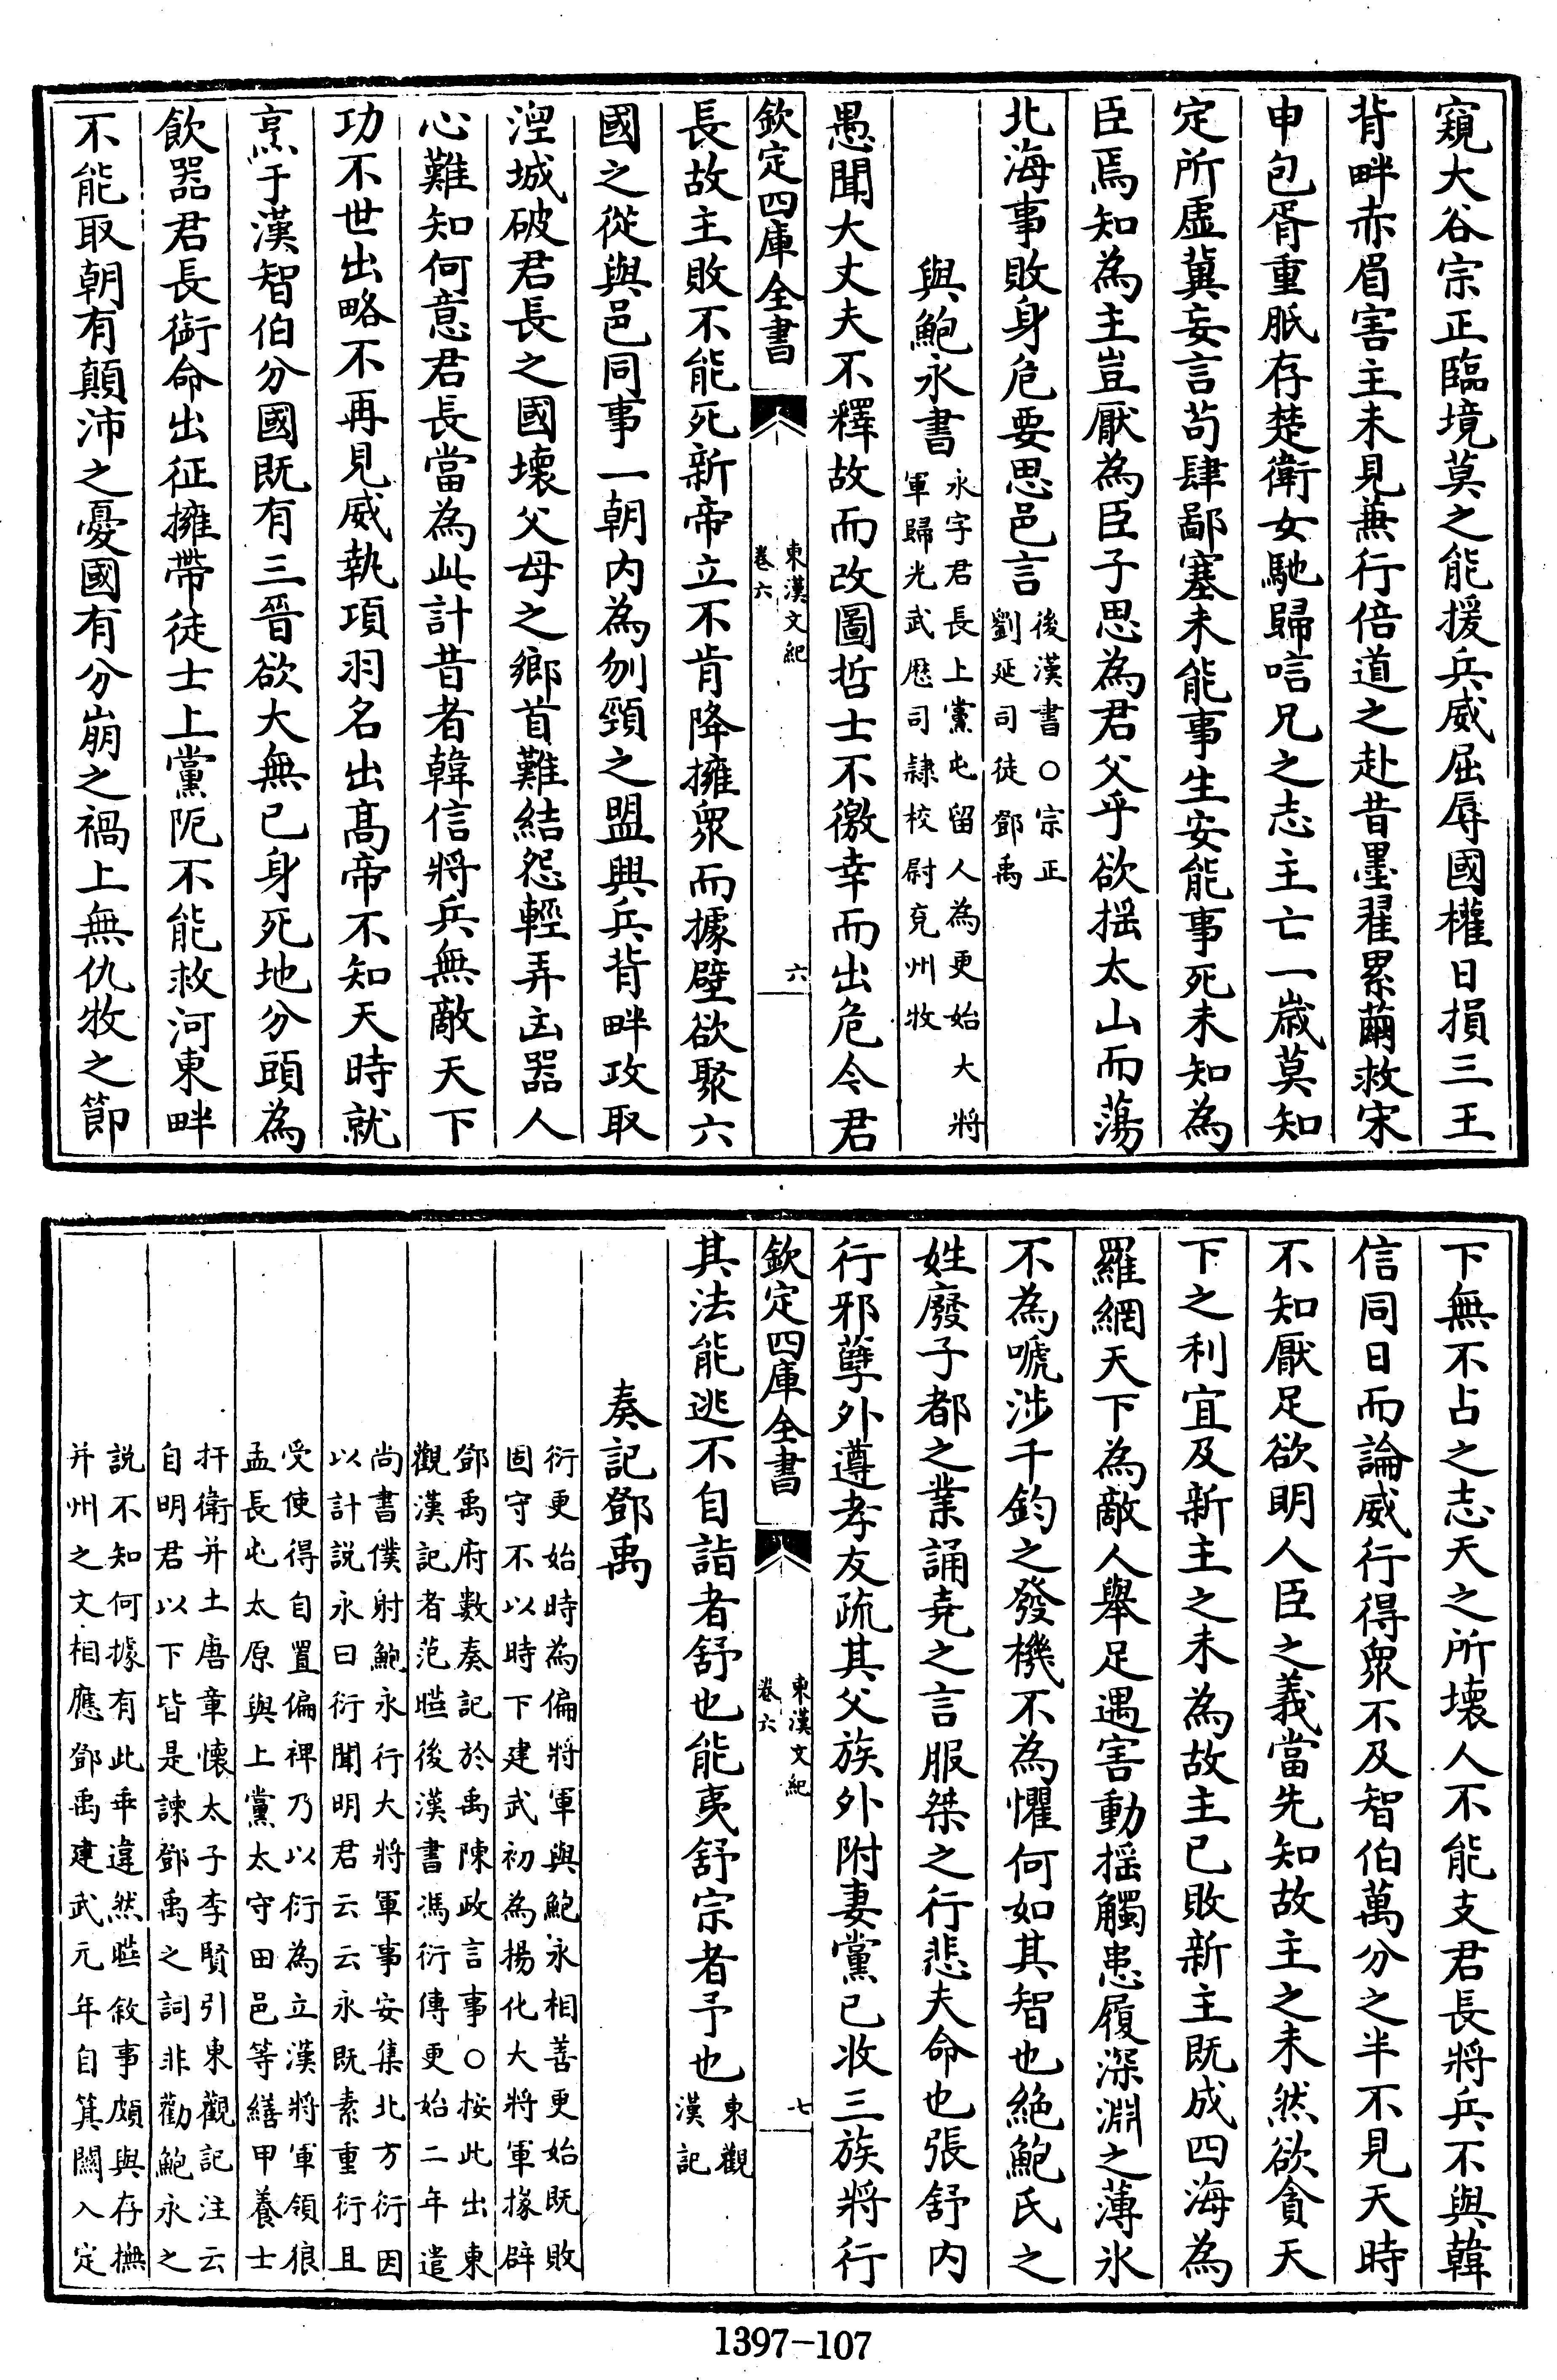 窺大谷宗正臨境莫之能援兵威屈辱國權日損三王
背畔赤眉害主未見兼行倍道之赴昔墨翟累繭救宋
申包胥重胝存楚衛女馳歸唁兄之志主亡一歲莫知
定所虛冀妄言苟肆鄙塞未能事生安能事死未知為
臣焉知為主豈厭為臣子思為君父乎欲揺太山而蕩
北海事敗身危要思邑言
後漢書○宗正
劉延司徒鄧禹
與鮑永書
永字君長上黨屯留人為更始大將
軍歸光武歴司隷校尉兖州牧
愚聞大丈夫不釋故而改圖哲士不徼幸而出危今君
欽定四庫全書
東漢文紀
卷六
六
長故主敗不能死新帝立不肯降擁衆而據壁欲聚六
國之從與邑同事一朝内為刎頸之盟興兵背畔攻取
涅城破君長之國壞父母之鄉首難結怨輕弄凶器人
心難知何意君長當為此計昔者韓信將兵無敵天下
功不世出略不再見威執項羽名出髙帝不知天時就
烹于漢智伯分國既有三晉欲大無已身死地分頭為
飲器君長銜命出征擁帶徒士上黨阨不能救河東畔
不能取朝有顛沛之憂國有分崩之禍上無仇牧之節
下無不占之志天之所壞人不能支君長將兵不與韓
信同日而論威行得衆不及智伯萬分之半不見天時
不知厭足欲明人臣之義當先知故主之未然欲貪天
下之利宜及新主之未為故主已敗新主既成四海為
羅網天下為敵人舉足遇害動揺觸患履深淵之薄氷
不為號涉千鈞之發機不為懼何如其智也絶鮑氏之
姓廢子都之業誦堯之言服桀之行悲夫命也張舒内
行邪孽外遵孝友疏其父族外附妻黨已收三族將行
欽定四庫全書
東漢文紀
卷六
七
其法能逃不自詣者舒也能夷舒宗者予也
東觀
漢記
奏記鄧禹
衍更始時為偏將軍與鮑永相善更始既敗
固守不以時下建武初為揚化大將軍掾辟
鄧禹府數奏記於禹陳政言事○按此出東
觀漢記者范曄後漢書馮衍傳更始二年遣
尚書僕射鮑永行大將軍事安集北方衍因
以計說永曰衍聞明君云云永既素重衍且
受使得自置偏裨乃以衍為立漢將軍領狼
孟長屯太原與上黨太守田邑等繕甲養士
扞衛并土唐章懷太子李賢引東觀記注云
自明君以下皆是諫鄧禹之詞非勸鮑永之
說不知何據有此乖違然曄敘事頗與存撫
并州之文相應鄧禹建武元年自箕關入定
1397-107